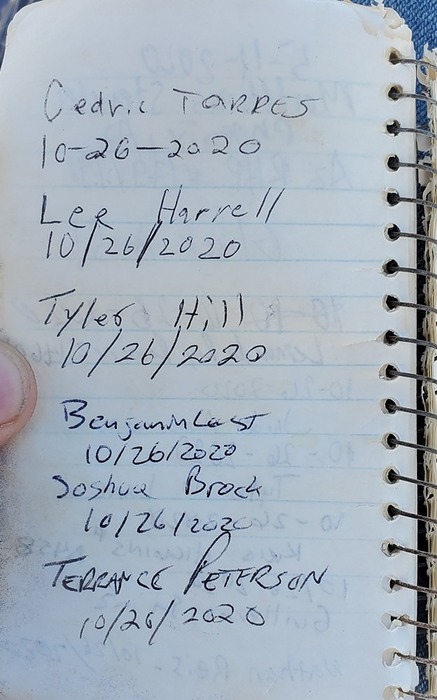 Cedric TORRES
10-26-2020
Lee Harrell
10/26/2020
Tyler Hill
10/26/2020
Benjamin Last
10/26/2020
Joshua Brock
10/26/2020
TERRANCE PETERSON
10/26/2020